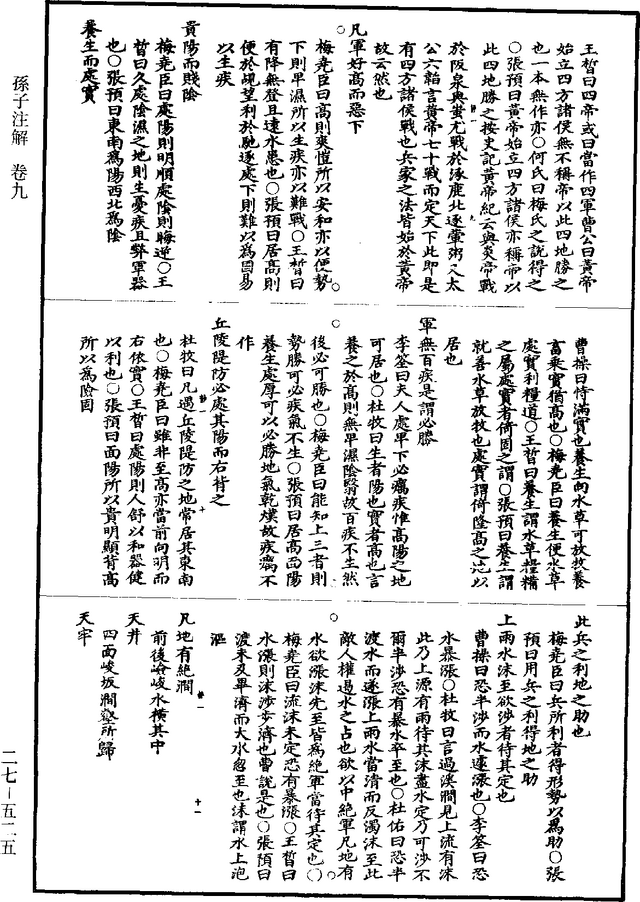 孫子注解　卷九
王晳曰四帝或曰當作四軍曹公曰黃帝
始立四方諸侯無不稱帝以此四地勝之
也一本無作亦○何氏曰梅氏之說得之
○張預曰黃帝始立四方諸侯亦稱帝以
此四地勝之按史記黃帝紀云與炎帝戰
於阪泉與蚩尤戰於涿鹿北逐葷粥又太
公六韜言黃帝七十戰而定天下此即是
有四方諸侯戰也兵家之法皆始於黃帝
故云然也
凡軍好高而惡下
梅堯臣曰高則爽愷所以安和亦以便勢
下則卑濕所以生疾亦以難戰○王晳曰
有降無登且遠水患也○張預曰居高則
便於覘望利於馳逐處下則難以爲固易
以生疾
貴陽而賤陰
梅堯臣曰處陽則明順處陰則晦逆○王
晳曰久處陰濕之地則生憂疾且弊軍器
也○張預曰東南爲陽西北爲陰
養生而處實
曹操曰恃滿實也養生向水草可放牧養
畜乘實猶高也○梅堯臣曰養生便水草
處實利糧道○王晳曰養生謂水草糧糒
之屬處實者倚固之謂○張預曰養生謂
就善水草放牧也處實謂倚隆高之地以
居也
軍無百疾是謂必勝
李筌曰夫人處卑下必癘疾惟高陽之地
可居也○杜牧曰生者陽也實者高也言
養之於高則無卑濕陰翳故百疾不生然
後必可勝也○梅堯臣曰能知上三者則
勢勝可必疾氣不生○張預曰居高面陽
養生處厚可以必勝地氣乾熯故疾癘不
作
丘陵隄防必處其陽而右背之
杜牧曰凡遇丘陵隄防之地常居其東南
也○梅堯臣曰雖非至高亦當前向明而
右依實○王晳曰處陽則人舒以和器健
以利也○張預曰面陽所以貴明顯背高
所以爲險固
此兵之利地之助也
梅堯臣曰兵所利者得形勢以爲助○張
預曰用兵之利得地之助
上雨水沫至欲涉者待其定也
曹操曰恐半涉而水遽漲也○李筌曰恐
水暴漲○杜牧曰言過溪澗見上流有沫
此乃上源有雨待其沫盡水定乃可涉不
爾半涉恐有暴水卒至也○杜佑曰恐半
渡水而遂漲上雨水當清而反濁沫至此
敵人權遏水之占也欲以中絕軍凡地有
水欲漲沫先至皆爲絕軍當待其定也○
梅堯臣曰流沫未定恐有暴漲○王晳曰
水漲則沫涉步濟也曹說是也○張預曰
渡未及畢濟而大水忽至也沫謂水上泡
漚
凡地有絕澗
前後險峻水橫其中
天井
四面峻坂澗壑所歸
天牢
二七—五二五